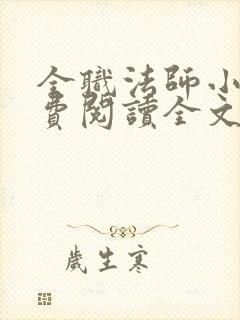 全職法師小
費閱讀全文
歲生寒